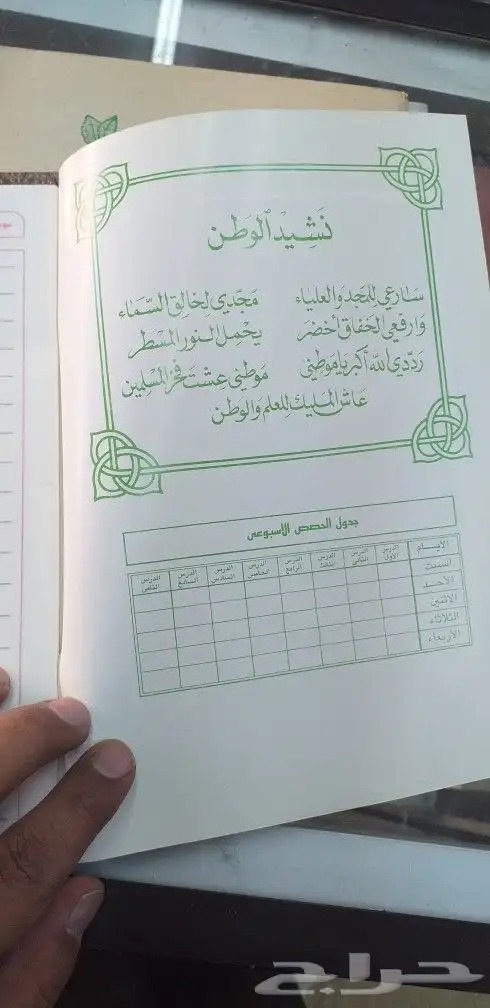 نَشِيْد الوَطن
سَارعي لِلمَجد وَالعَلياء مَجّدي لِخالِق السّمَاء
وَارفَعي الخَفاق أخضَر يحْمل النور المسَطر
ردّدي الله أكبر يا مَوطني مَوطني عشت فخر المسلمين
عَاش المليك للعلم وَالوطن
جدول الحصص الاسبوعى
الأيـــام الدرس الأول الدرس الثاني الدرس الثالث الدرس الرابع الدرس الخامس الدرس السادس الدرس السابع الدرس الثامن
السبت
الأحــد
الاثنين
الثلاثاء
الأربعاء
حراج